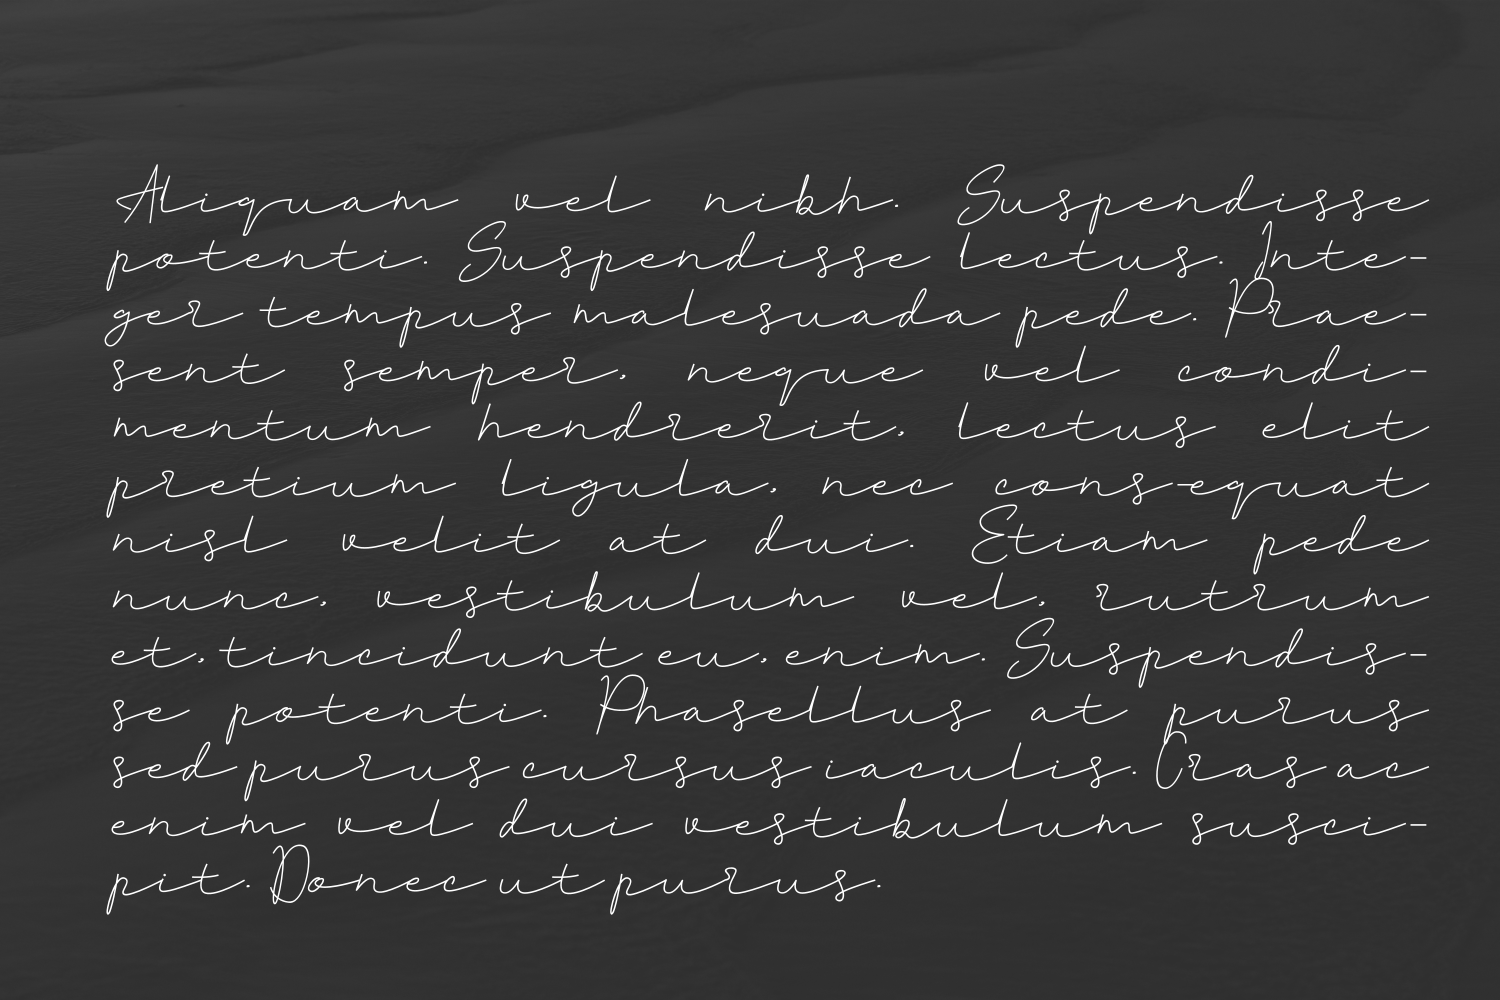 Aliquam vel nibh. Suspendisse
potenti. Suspendisse lectus. Inte-
ger tempus malesuada pede. Prae-
sent semper, neque vel condi-
mentum hendrerit, lectus elit
pretium ligula, nec cons-equat
nisl velit at dui. Etiam pede
nunc, vestibulum vel, rutrum
et, tincidunt eu, enim. Suspendis-
se potenti. Phasellus at purus
sed purus cursus iaculis. Cras ac
enim vel dui vestibulum susci-
pit. Donec ut purus.